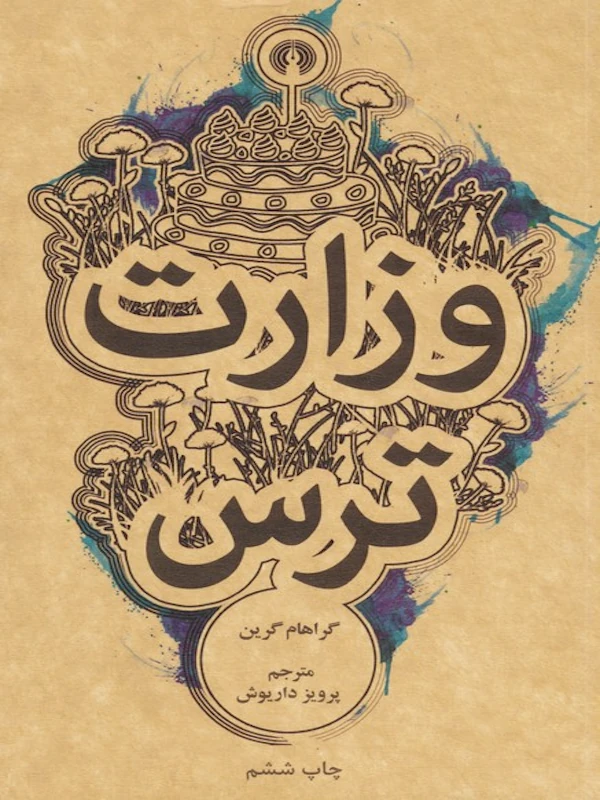 وزارت
ترس
گراهام گرین
مترجم
پرویز داریوش
چاپ ششم